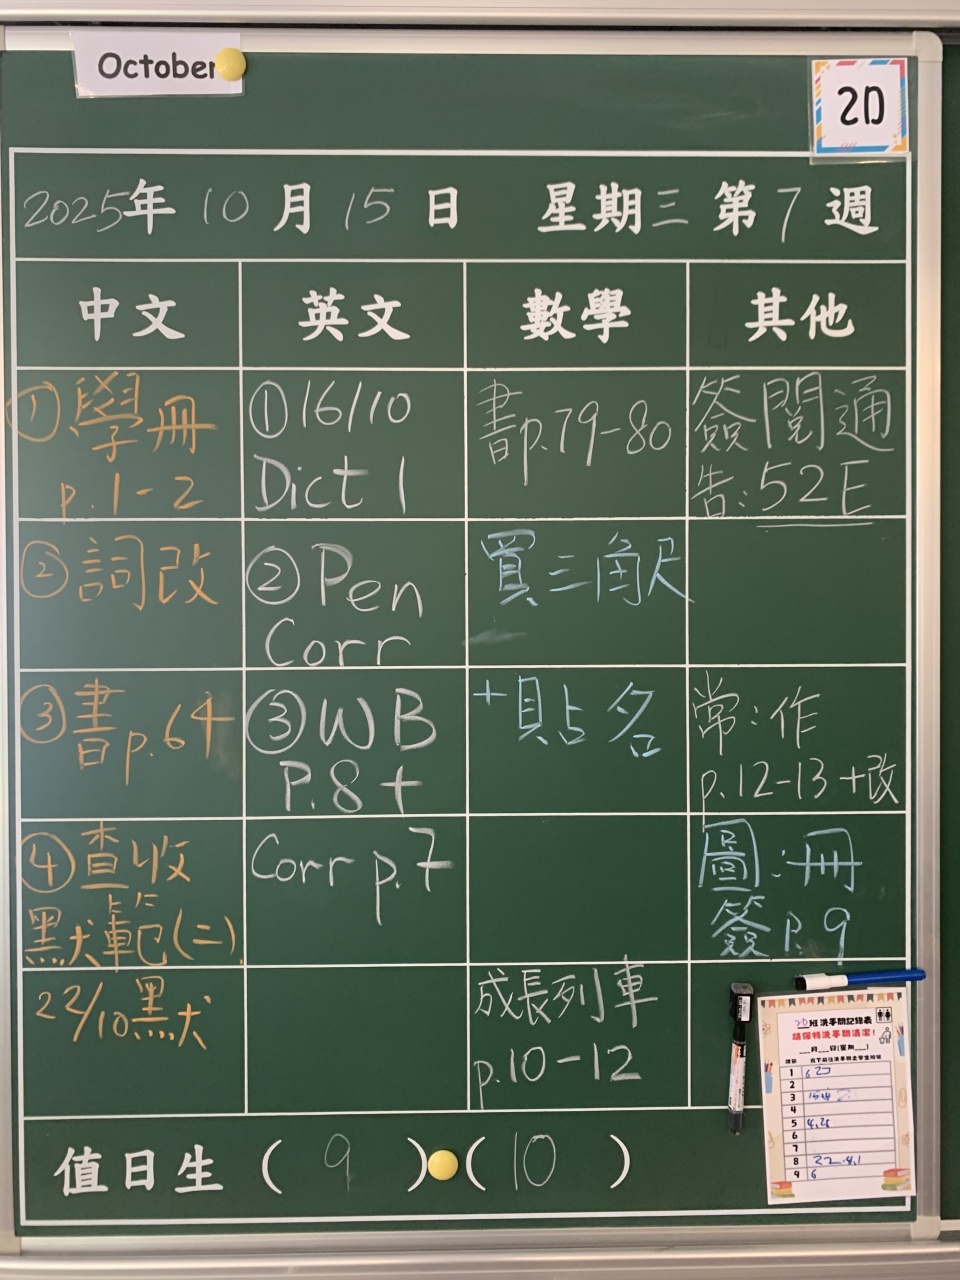 October
2D
2025年 10月 15日 星期三 第7週
中文
英文
數學
其他
①學冊
p.1-2
②詞改
③書p.64
④查收
默範(二)
22/10默
①16/10
Dict 1
②Pen
Corr
③WB
P.8+
Corr p.7
書p.79-80
買三角尺
+貼名
成長列車
p.10-12
簽閱通
告:52E
常:作
p.12-13+改
圖:冊
簽P.9
2D班洗手間記錄表
請保持洗手間清潔!
___月___日(星期___)
1
2
3
4
5 4,28
6
7
8
9 6
值日生 ( 9 ) ( 10 )